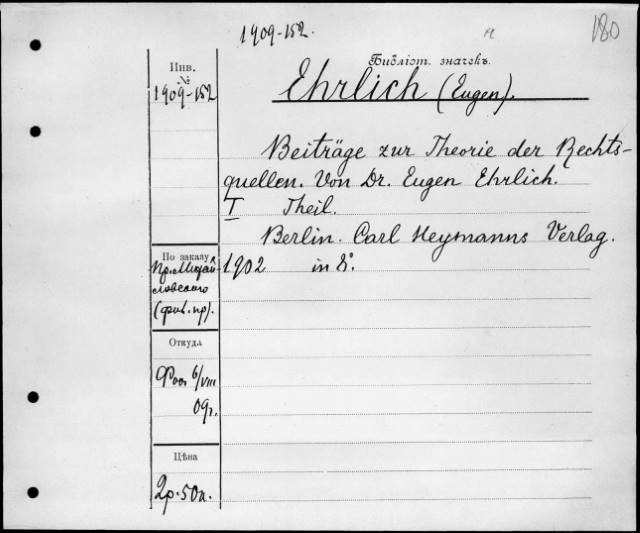 1909-152.
180
Библіот. значекъ.
Инв.
№
1909-152
Ehrlich (Eugen).
Beiträge zur Theorie der Rechts-
quellen. Von Dr. Eugen Ehrlich.
I Theil.
Berlin. Carl Heymanns Verlag.
1902 in 8°.
По заказу
пр. Михай-
ловскаго
Откуда
6/VIII
09г.
Цѣна
2р. 50к.